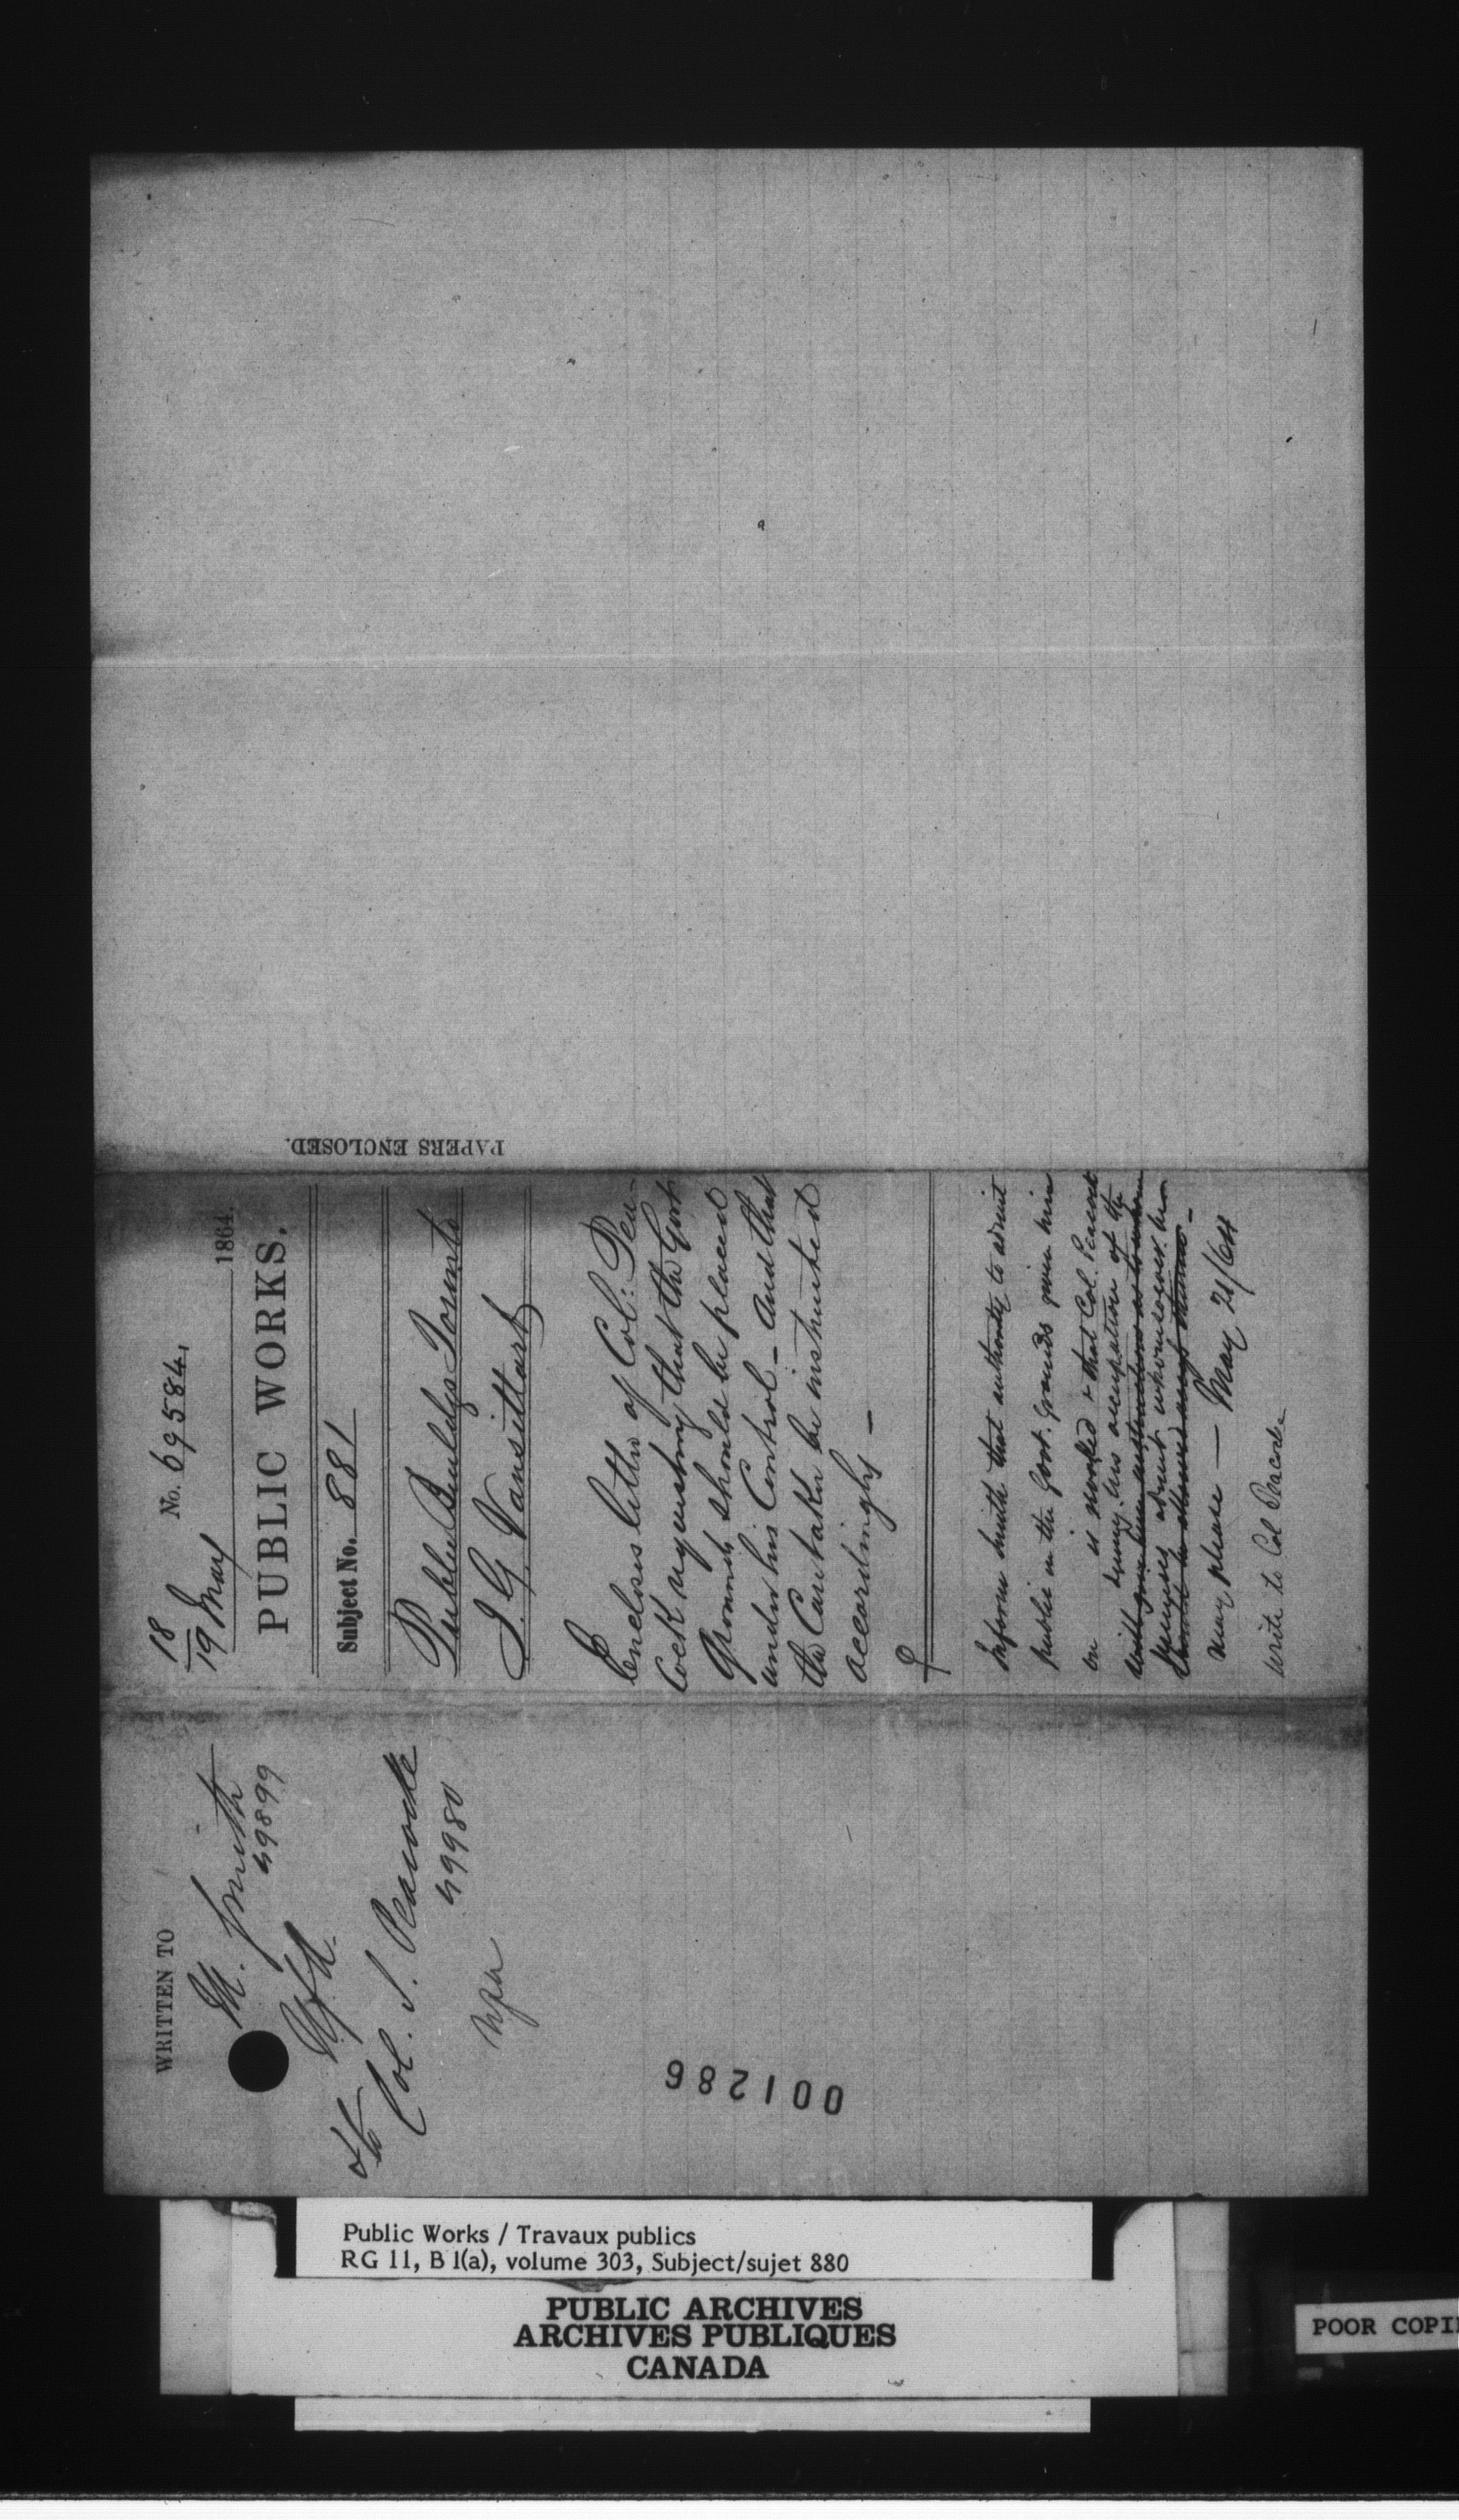 18
19 May
No. 69584.
1864.
PUBLIC WORKS.
Subject No. 881
Public Buildgs Toronto
J. G. Vansittart
Encloses letter of Col: Pea-
cock requesting that the Govt
Grounds should be placed
under his Control - and that
the Caretaker be instructed
accordingly -
Inform Smith that authority to admit
public in the Govt. Grounds given him
on is revoked & that Col. Peacock
during his occupation of the
premises admit whomsoever he
may please — May 21/64
write to Col Peacocke
PAPERS ENCLOSED.
WRITTEN TO
M. Smith
49899
Col. S. Peacocke
49980
001286
Public Works / Travaux publics
RG 11, B 1(a), volume 303, Subject/sujet 880
PUBLIC ARCHIVES
ARCHIVES PUBLIQUES
CANADA
POOR COPI